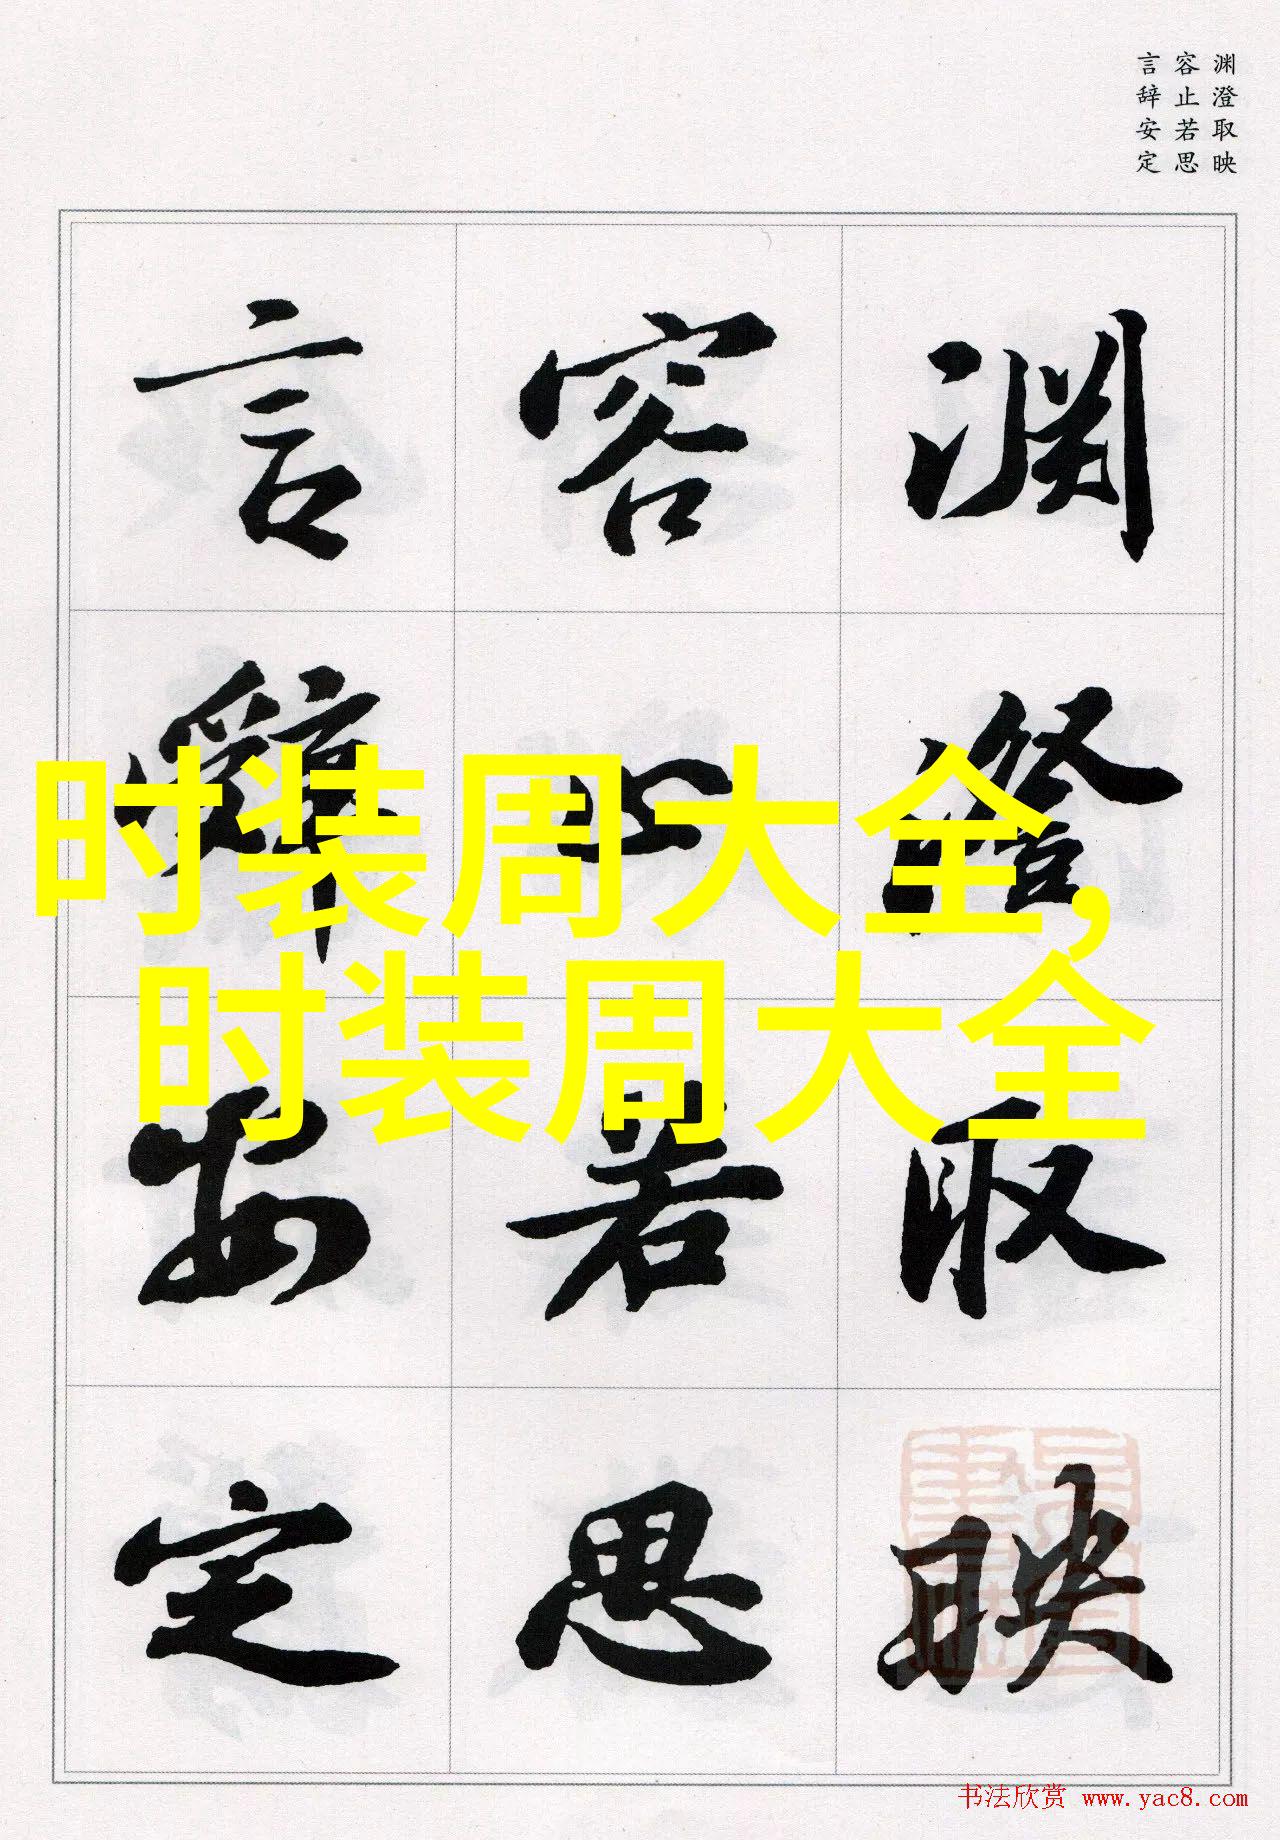 渊澄取映
容止若思
言辞安定
渊澄取映
容止若思
言辞安定
时装周大全,
时装周大全
书法欣赏 www.yac8.com